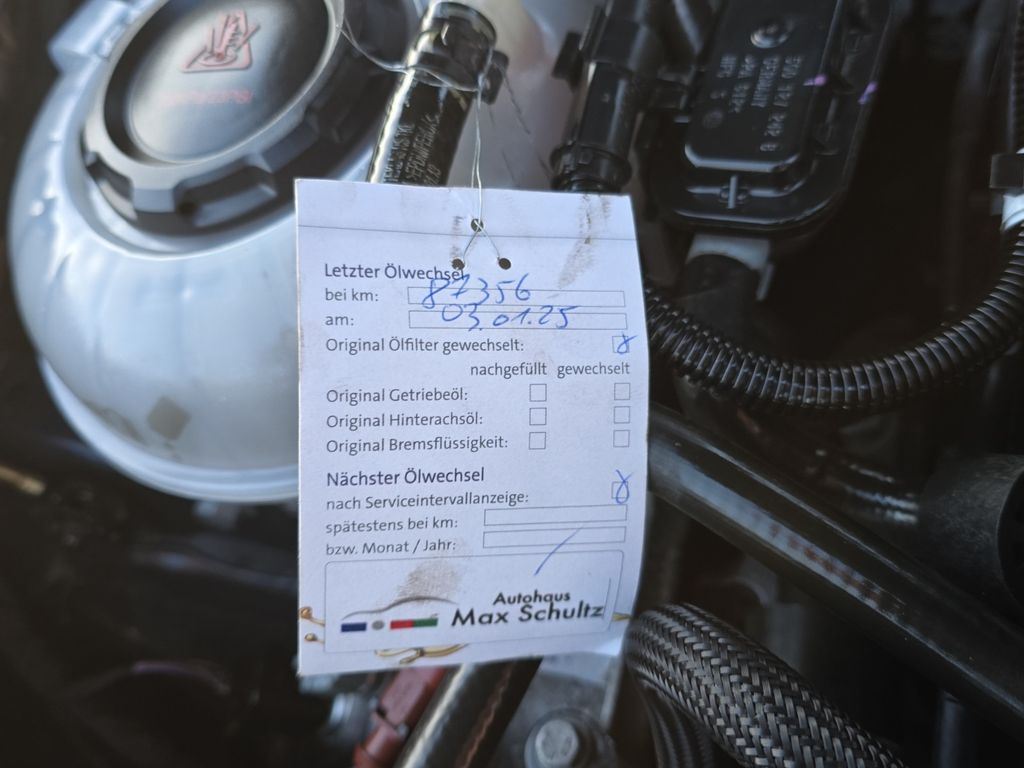 Letzter Ölwechsel
bei km: 87356
am: 03.01.25
Original Ölfilter gewechselt:
nachgefüllt gewechselt
Original Getriebeöl:
Original Hinterachsöl:
Original Bremsflüssigkeit:
Nächster Ölwechsel
nach Serviceintervallanzeige:
spätestens bei km:
bzw. Monat / Jahr:
Autohaus
Max Schultz